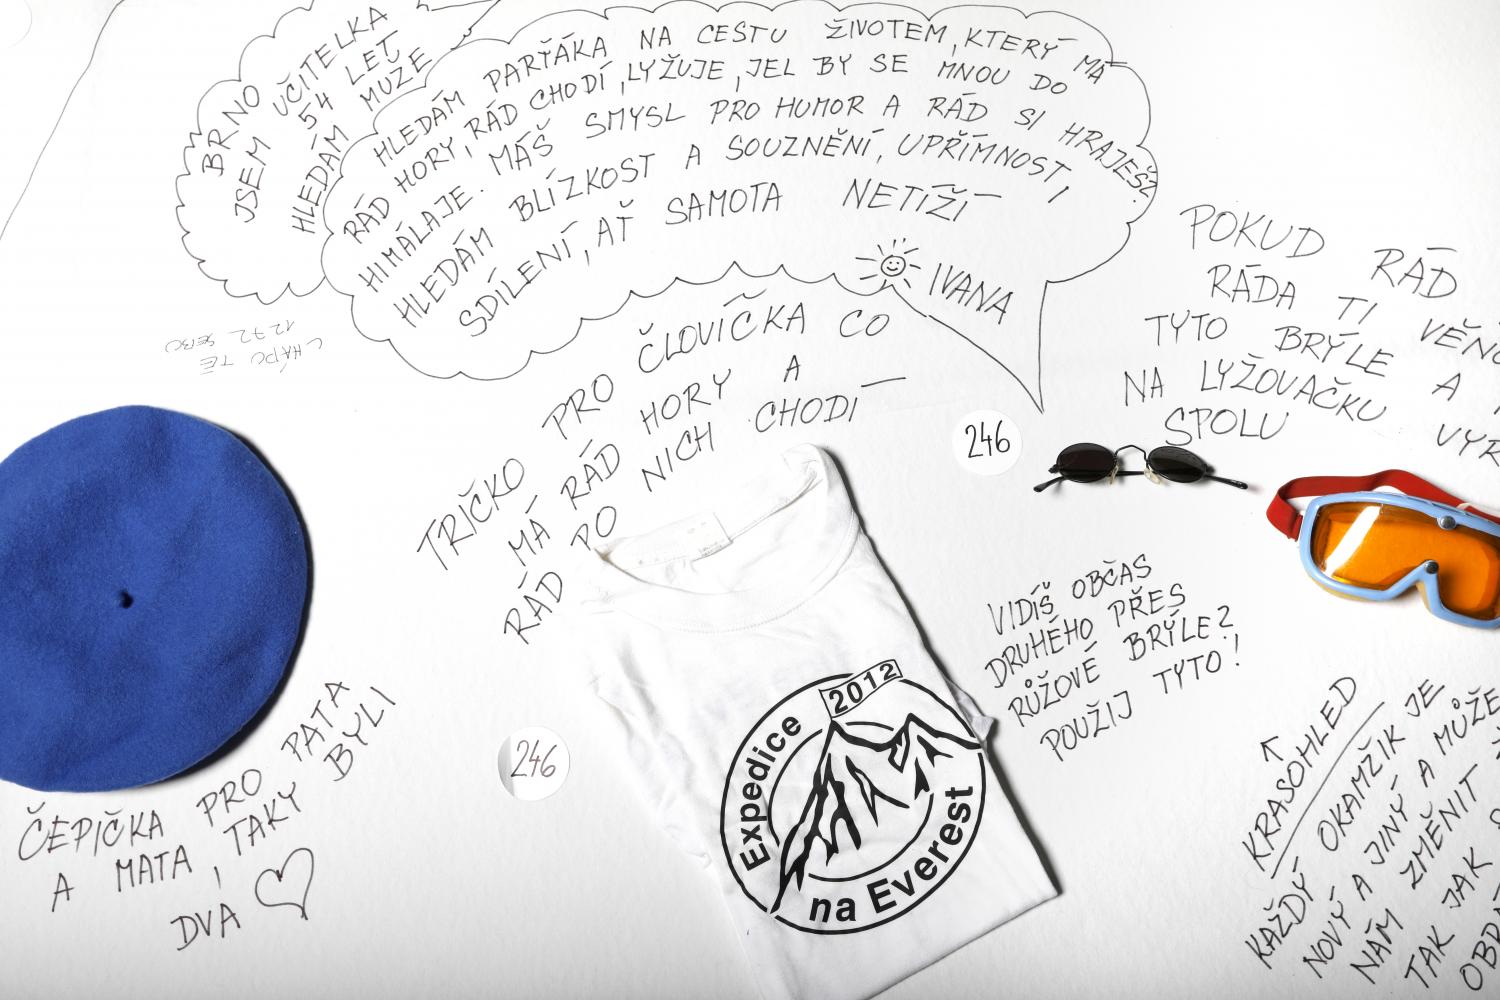 BRNO
JSEM UČITELKA
54 LET
HLEDÁM MUŽE
HLEDÁM PARŤÁKA NA CESTU ŽIVOTEM, KTERÝ MÁ
RÁD HORY, RÁD CHODÍ, LYŽUJE, JEL BY SE MNOU DO
HIMÁLAJE. MÁŠ SMYSL PRO HUMOR A RÁD SI HRAJEŠ?
HLEDÁM BLÍZKOST A SOUZNĚNÍ, UPŘÍMNOST,
SDÍLENÍ, AŤ SAMOTA NETÍŽÍ
IVANA
CHÁPU TĚ
1272
TRIČKO PRO ČLOVÍČKA CO
MÁ RÁD HORY A
RÁD PO NICH CHODÍ
246
POKUD RÁD
RÁDA TI VĚN
TYTO BRÝLE A
NA LYŽOVAČKU VYR
SPOLU
VIDÍŠ OBČAS
DRUHÉHO PŘES
RŮŽOVÉ BRÝLE?
POUŽIJ TYTO!
246
Expedice
2012
na Everest
ČEPIČKA PRO PATA
A MATA, TAKY BYLI
DVA
KRASOHLED
KAŽDÝ OKAMŽIK JE
NOVÝ A JINÝ A MŮŽE
NÁM ZMĚNIT
TAK JAK